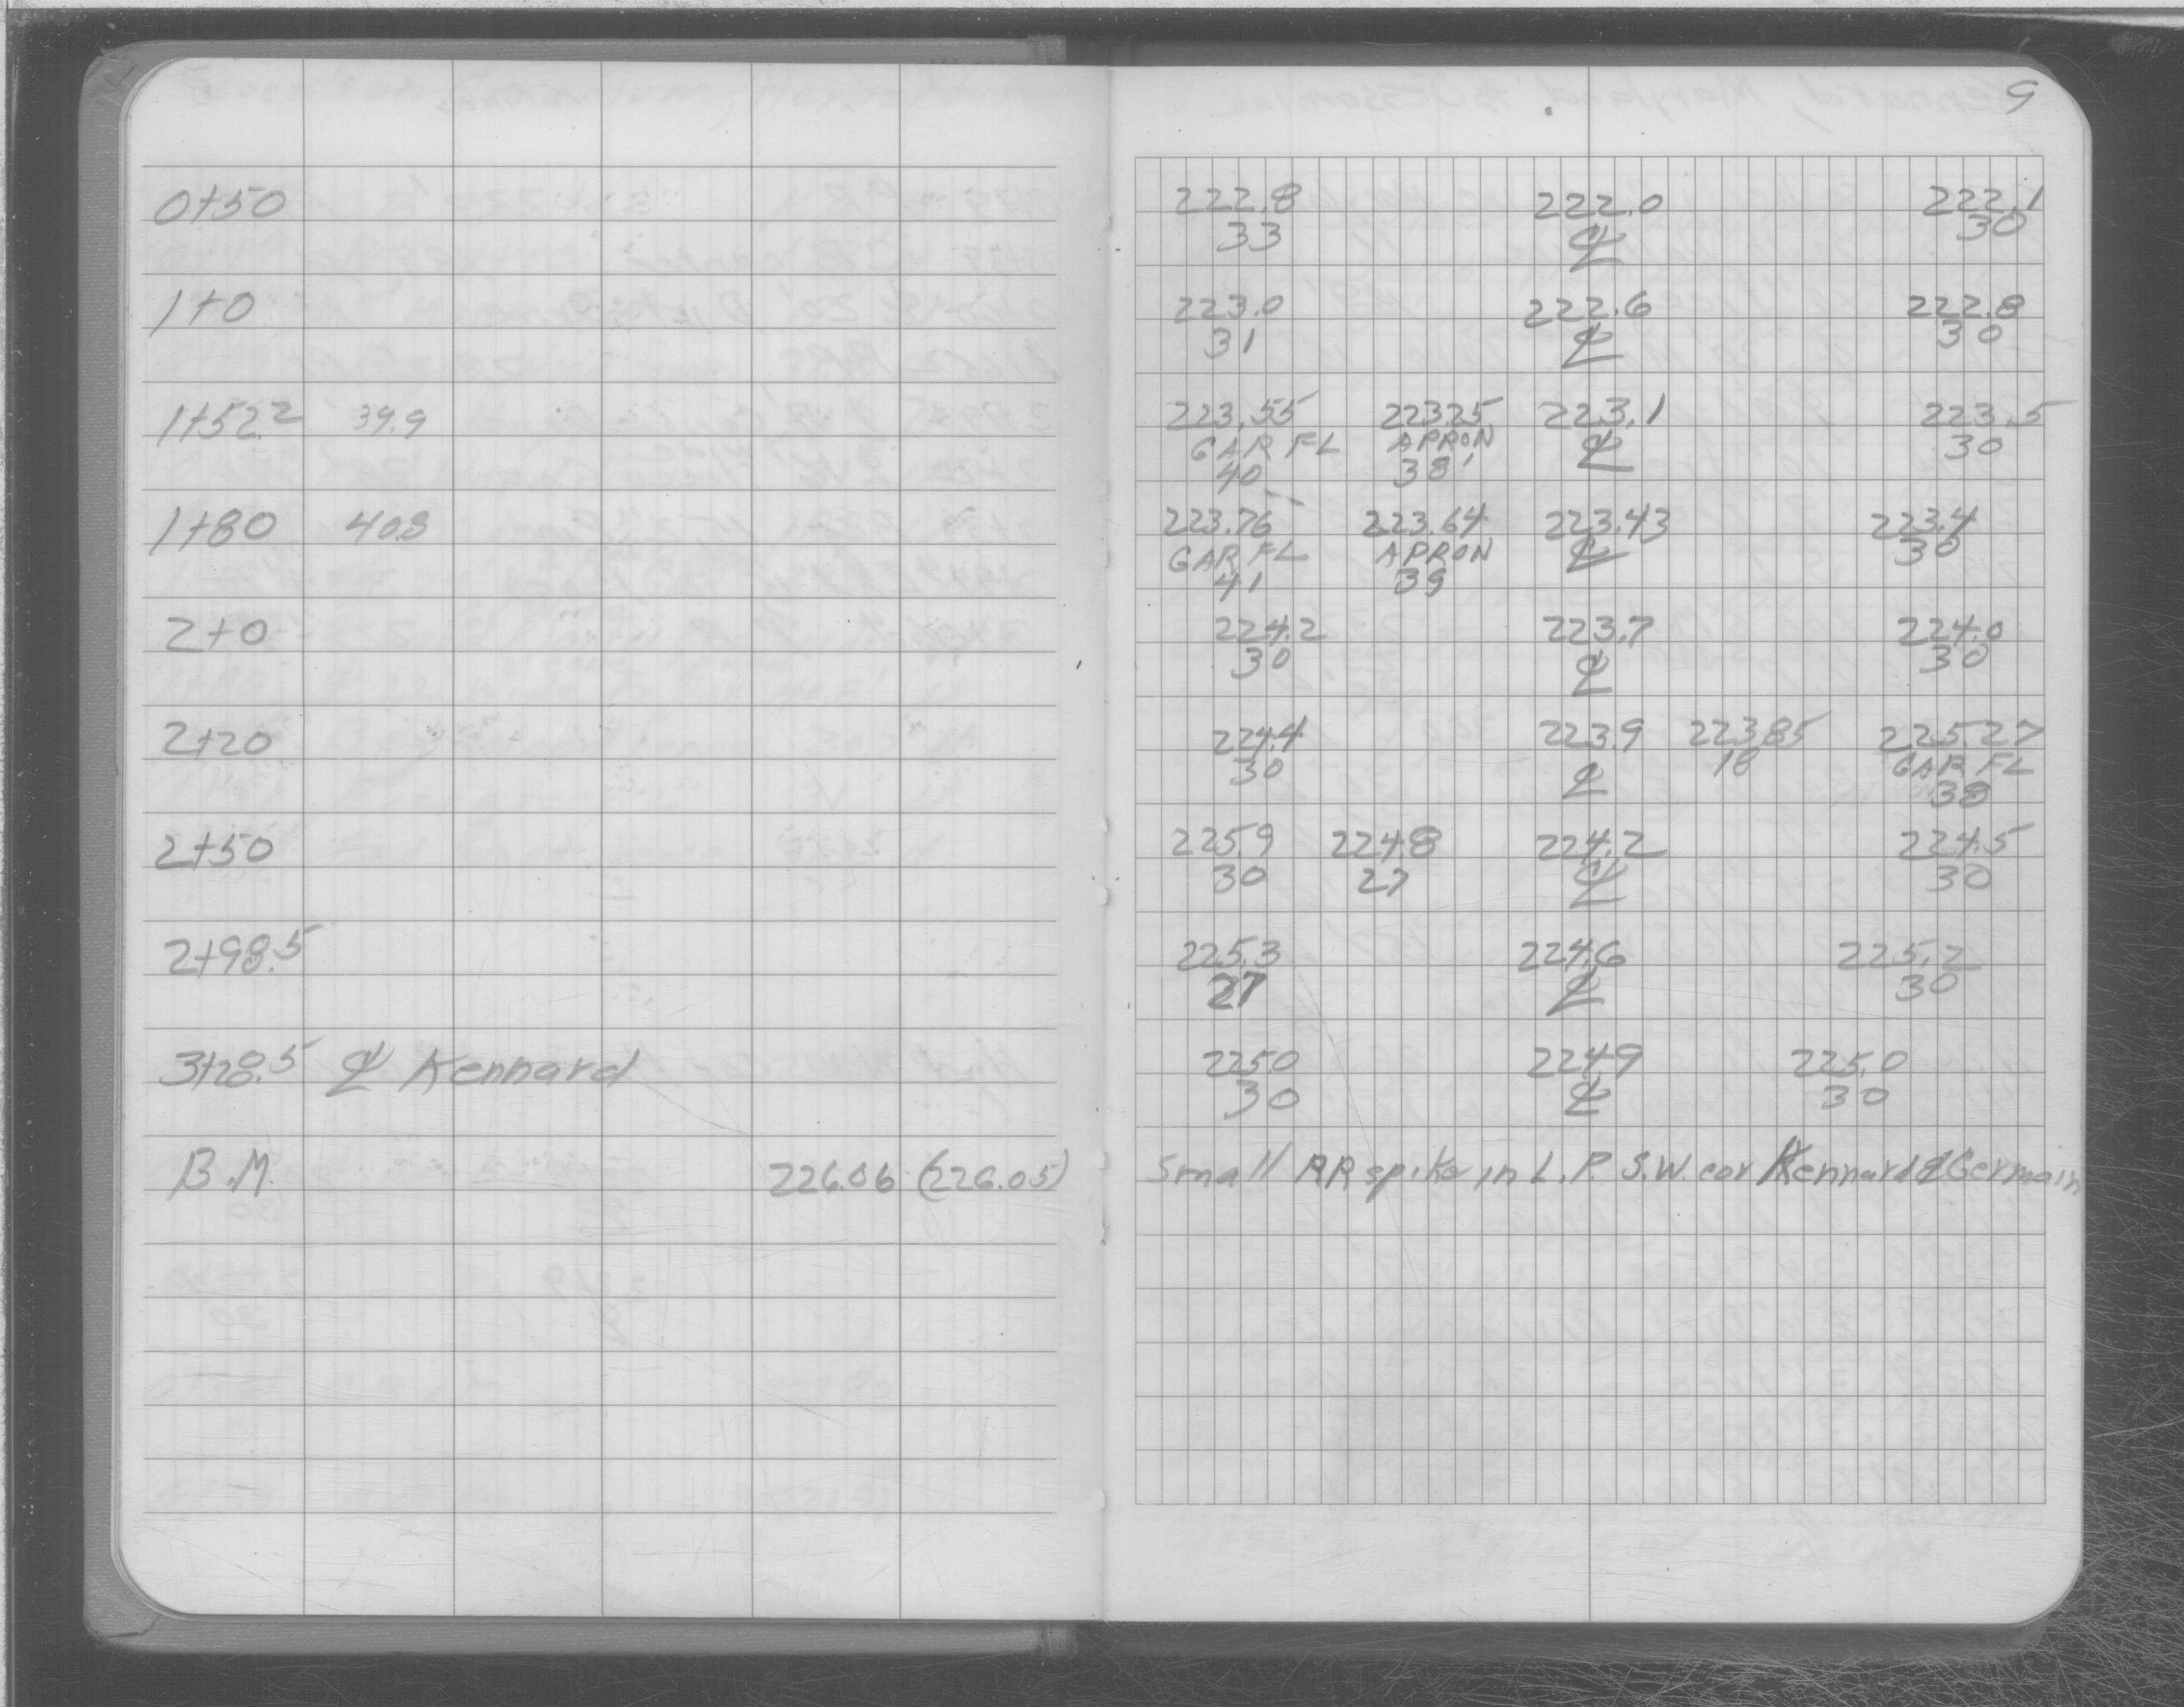 9
0+50 222.8 222.0 222.1
33 ℄ 30
1+0 223.0 222.6 222.8
31 ℄ 30
1+52.2 39.9 223.55 223.25 223.1 223.5
GAR FL APRON ℄ 30
40 38'
1+80 40.8 223.76 223.64 223.43 223.4
GAR FL APRON ℄ 30
41 39
2+0 224.2 223.7 224.0
30 ℄ 30
2+20 224.4 223.9 223.85 225.27
30 ℄ 18 GAR FL
38
2+50 225.9 224.8 224.2 224.5
30 27 ℄ 30
2+98.5 225.3 224.6 225.2
27 ℄ 30
3+28.5 ℄ Kennard 225.0 224.9 225.0
30 ℄ 30
B.M. 226.06 (226.05) Small RR spike in L.P. S.W. cor Kennard & Germain